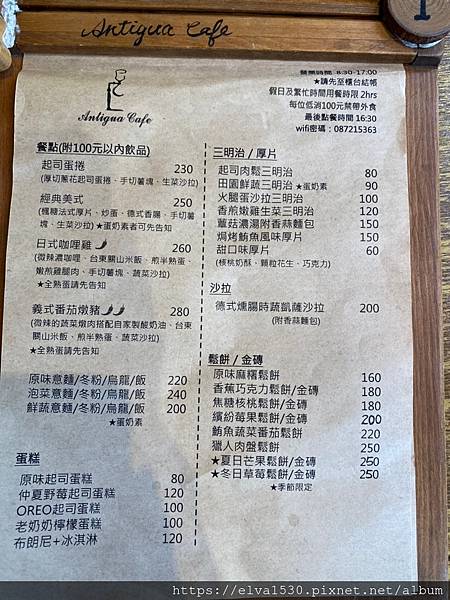 Antigua Cafe
1
Antigua Cafe
營業時間 8:30-17:00
★請先至櫃台結帳
假日及繁忙時間用餐時限 2hrs
每位低消100元禁帶外食
最後點餐時間 16:30
wifi密碼：087215363
餐點(附100元以內飲品)
起司蛋捲 230
(厚切蔥花起司蛋捲、手切薯塊、生菜沙拉)
經典美式 250
(楓糖法式厚片、炒蛋、德式香腸、手切薯
塊、生菜沙拉)★蛋奶素者可先告知
日式咖哩雞 260
(微辣濃咖哩、台東關山米飯、煎半熟蛋、
嫩煎雞腿肉、手切薯塊、蔬菜沙拉)
★全熟蛋請先告知
義式番茄燉豬 280
(微辣的蔬菜燉肉搭配自家製酸奶油、台東
關山米飯、煎半熟蛋、蔬菜沙拉)
★全熟蛋請先告知
原味意麵/冬粉/烏龍/飯 220
泡菜意麵/冬粉/烏龍/飯 240
鮮蔬意麵/冬粉/烏龍/飯 200
★蛋奶素
蛋糕
原味起司蛋糕 80
仲夏野莓起司蛋糕 120
OREO起司蛋糕 100
老奶奶檸檬蛋糕 100
布朗尼+冰淇淋 120
三明治 / 厚片
起司肉鬆三明治 80
田園鮮蔬三明治 ★蛋奶素 90
火腿蛋沙拉三明治 100
香煎嫩雞生菜三明治 120
蘑菇濃湯附香蒜麵包 150
焗烤鮪魚風味厚片 150
甜口味厚片 60
(核桃奶酥、顆粒花生、巧克力)
沙拉
德式燻腸時蔬凱薩沙拉 200
(附香蒜麵包)
鬆餅 / 金磚
原味麻糬鬆餅 160
香蕉巧克力鬆餅/金磚 180
焦糖核桃鬆餅/金磚 180
繽紛莓果鬆餅/金磚 200
鮪魚蔬菜番茄鬆餅 220
獵人肉盤鬆餅 250
★夏日芒果鬆餅/金磚 250
★冬日草莓鬆餅/金磚 250
★季節限定
https://elva1530.pixnet.net/album